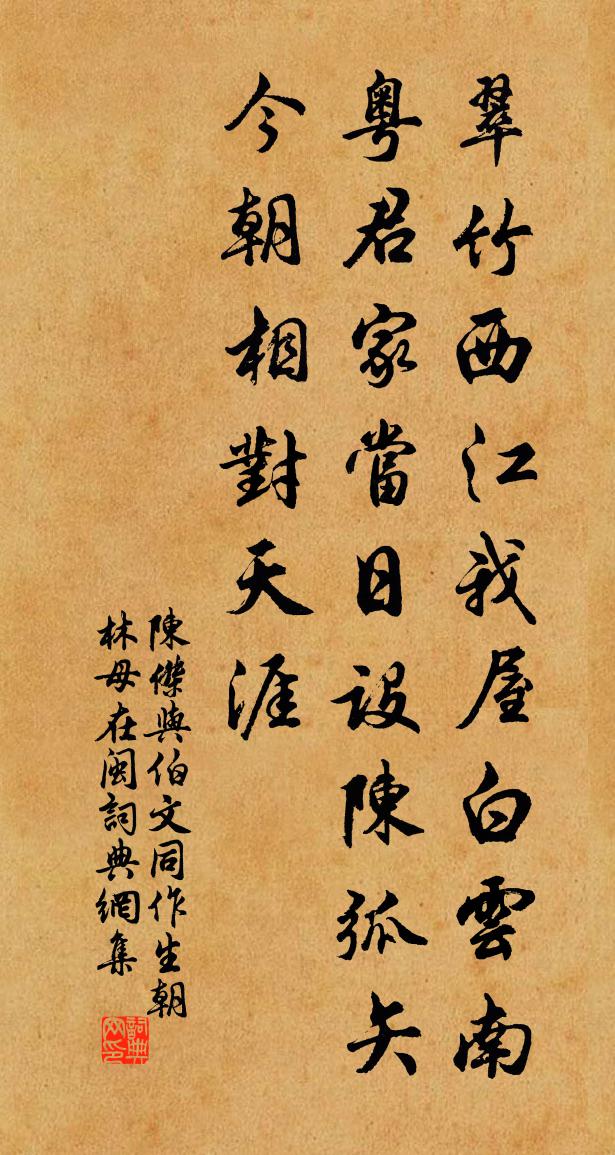 翠竹西江我屋白雲南
粵君家當日設陳弧矢
今朝相對天涯
陳傑與伯文同作生朝
林母在閩詞典網集
詞典网印